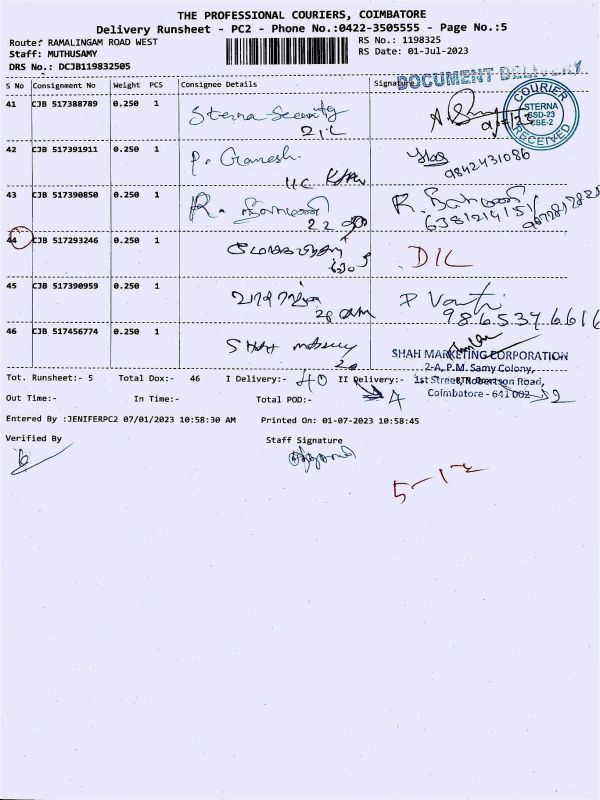 THE PROFESSIONAL COURIERS, COIMBATORE
Delivery Runsheet - PC2 - Phone No.:0422-3505555 - Page No.:5
Route: RAMALINGAM ROAD WEST RS No.: 1198325
Staff: MUTHUSAMY RS Date: 01-Jul-2023
DRS No.: DCJB119832505
DOCUMENT DELIVERY
S No Consignment No Weight PCS Consignee Details Signature
COURIER
STERNA
BSD-23
CBE-2
RECEIVED
41 CJB 517388789 0.250 1 Sterna Security
42 CJB 517391911 0.250 1 P. Ganesh. 9842431086
43 CJB 517390850 0.250 1 R.
22 R.
44 CJB 517293246 0.250 1 DIL
45 CJB 517390959 0.250 1 P
46 CJB 517456774 0.250 1 SHAH
SHAH MARKETING CORPORATION
2-A, P.M. Samy Colony,
1st Street, Robertson Road,
Coimbatore - 641 002
Tot. Runsheet:- 5 Total Dox:- 46 I Delivery:- 40 II Delivery:- 4
Out Time:- In Time:- Total POD:-
Entered By :JENIFERPC2 07/01/2023 10:58:30 AM Printed On: 01-07-2023 10:58:45
Verified By Staff Signature
5-12